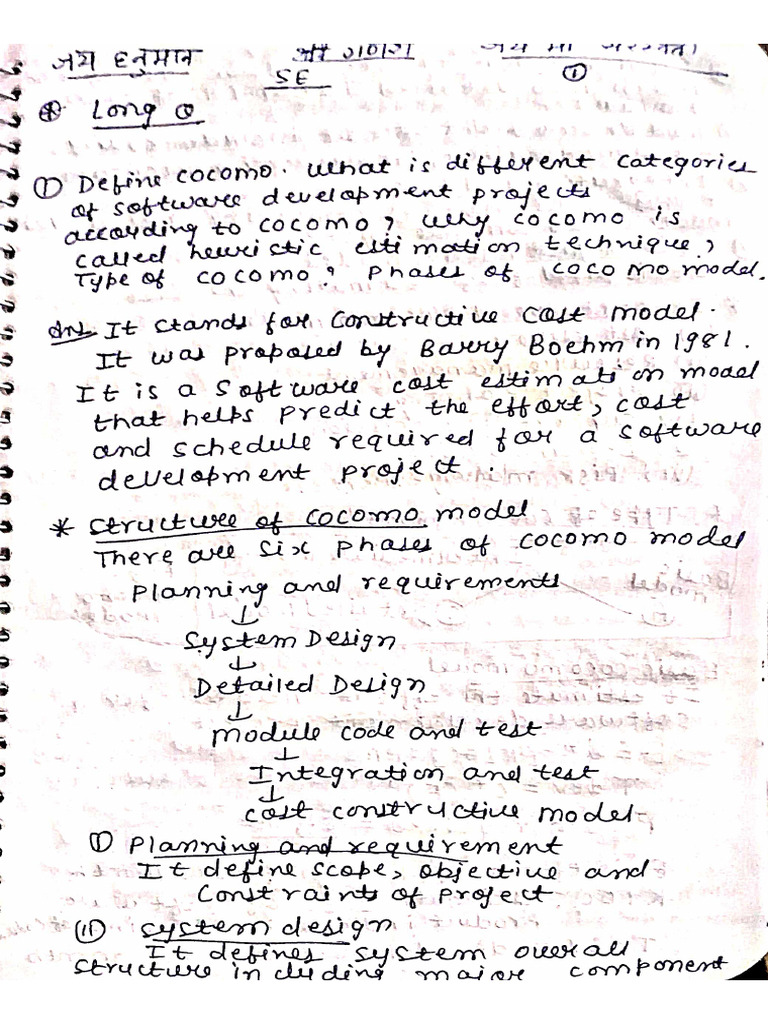 जय हनुमान श्री गणेश जय माँ सरस्वती
SE ①
⊛ Long Q
① Define cocomo. What is different categories
of software development projects
according to cocomo, why cocomo is
called heuristic estimation technique,
Type of cocomo, phases of cocomo model.
Ans It stands for Constructive Cost model.
It was proposed by Barry Boehm in 1981.
It is a software cost estimation model
that helps predict the effort, cost
and schedule required for a software
development project.
* Structure of cocomo model
There are six phases of cocomo model
Planning and requirements
↓
System Design
↓
Detailed Design
↓
Module code and test
↓
Integration and test
↓
cost constructive model
① Planning and requirement
It define scope, objective and
Constraints of project
⑪ system design
It defines system overall
structure including major component